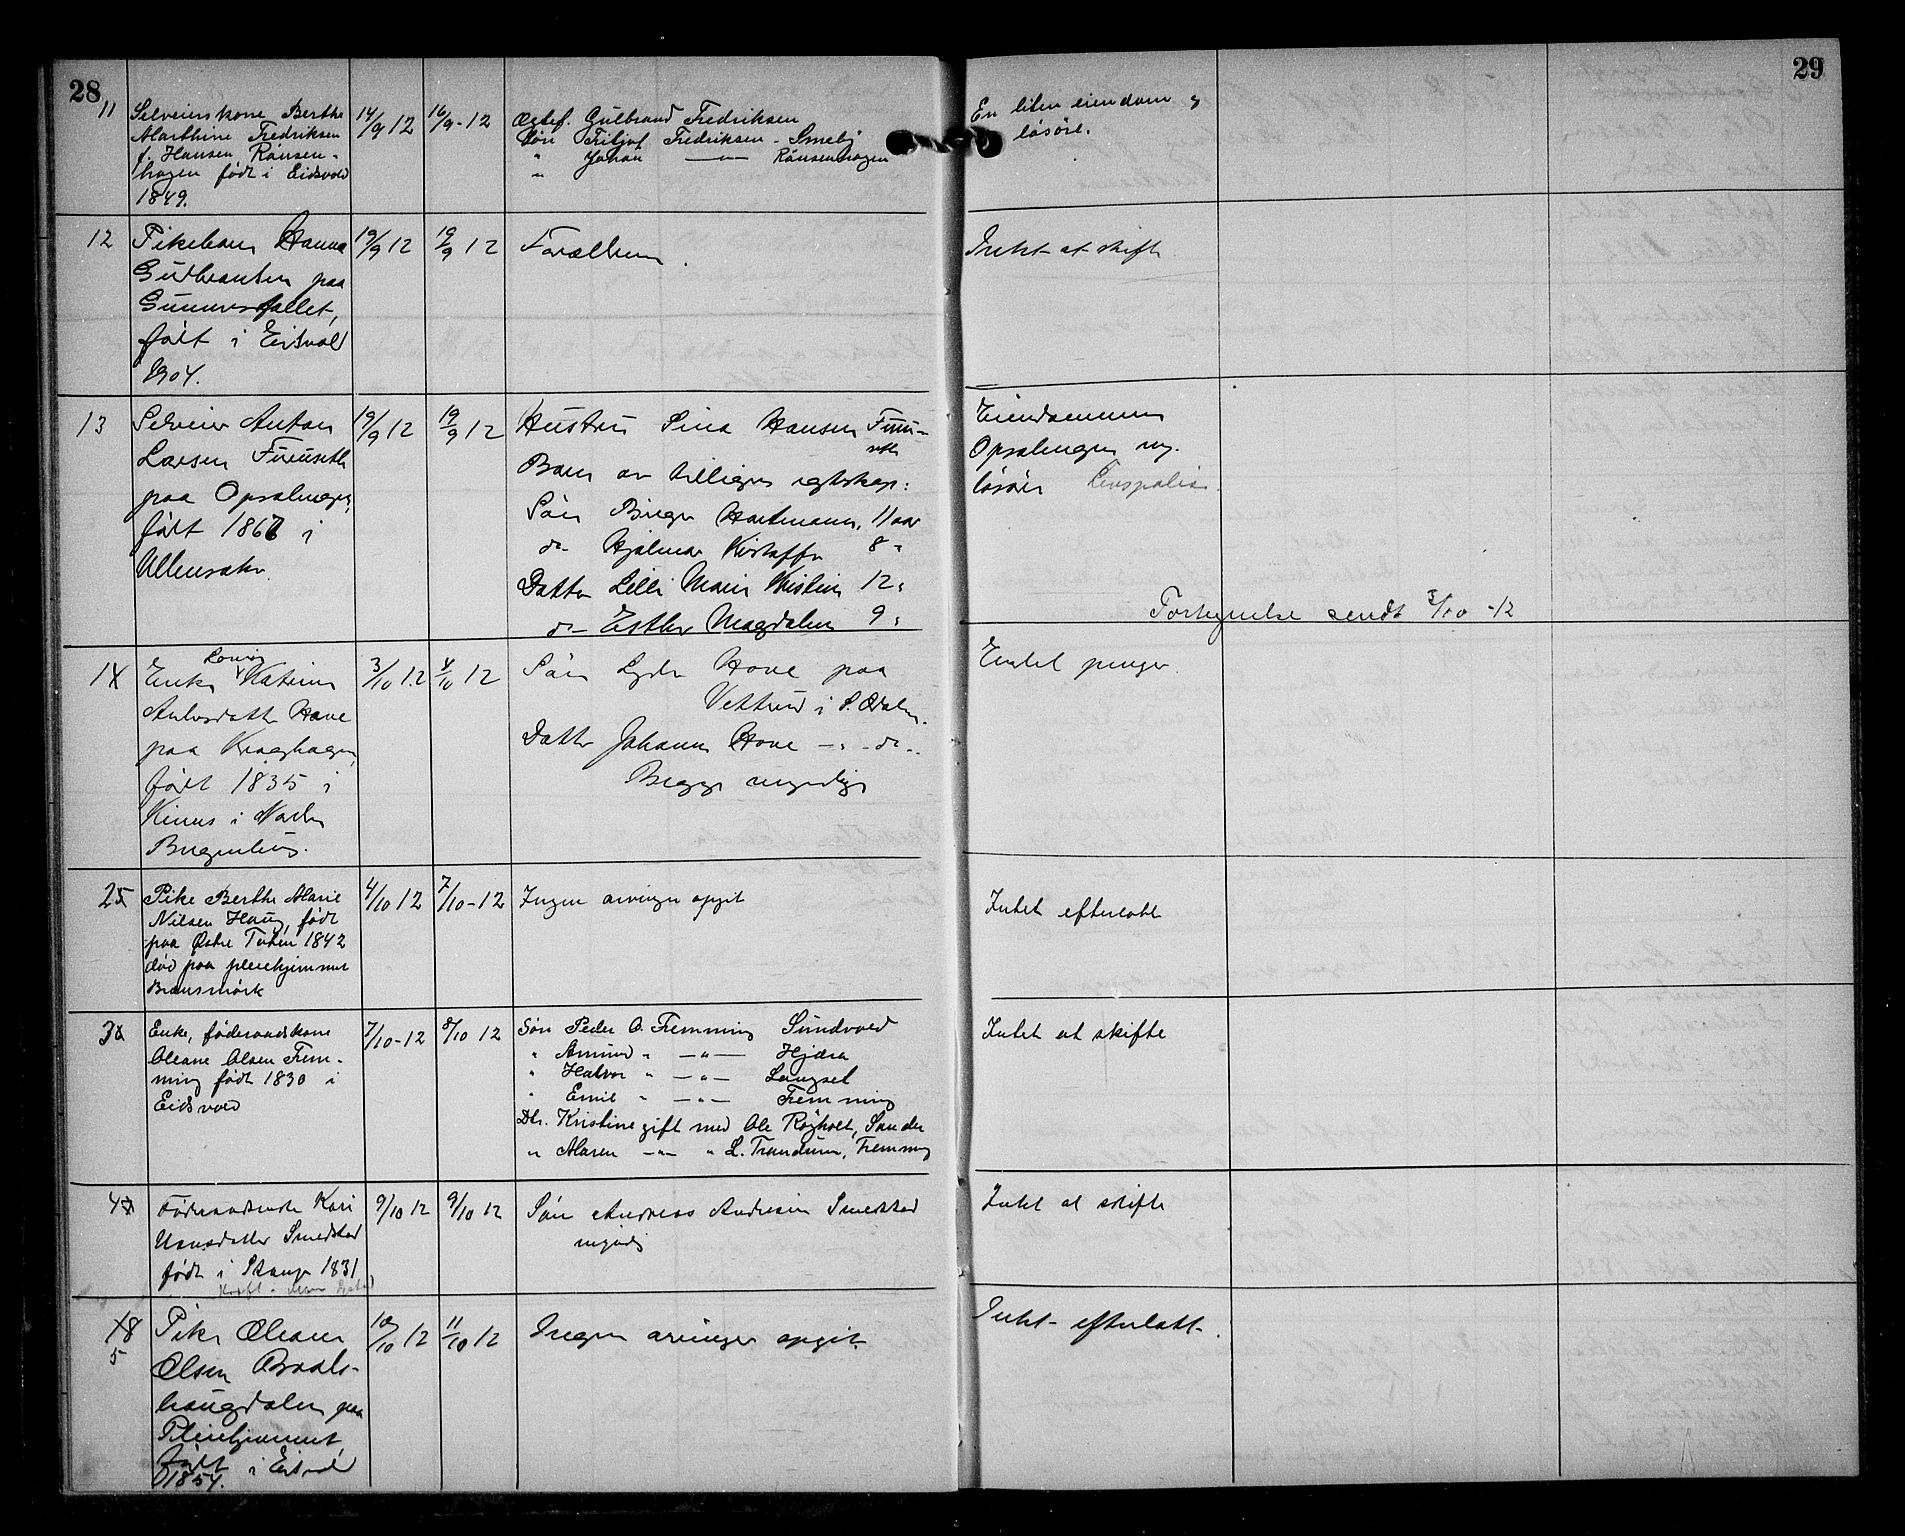 28
29
11
Selveierskone Berthe
Marthine Fredriksen
f. Hansen, Rånsen-
hagen født i Eidsvold
1849.
14/9 12
16/9-12
Ægtef. Gulbrand Fredriksen
Søn Fritjof Fredriksen - Smeby
" Johan —"— Rånsenhagen
En liten eiendom og
løsøre.
12
Pikebarn Hanna
Gudbransen paa
Gunnersfallet,
født i Eidsvold
1904.
19/9 12
19/9 12
Forældrene.
Intet at skifte
13
Selveier Anton
Larsen Furuseth
paa Opsalengen,
født 1867 i
Ullensaker.
19/9 12
19/9 12
Hustru Lina Hansen Furu-
seth
Barn av tidligere egteskap:
Søn Birger Hartmann, 11 aar
do- Hjalmar Kristoffer 8 "
Datter Lilli Marie Kristine 12 "
do- Esther Magdalene 9 "
Eiendommen
Opsalengen og
løsøre Livspolise.
Fortegnelse sendt 3/10 -12
14
Lovise
Enke Katrine
Andersdatter Hove
paa Kraghagen,
født 1835 i
Kinns i Nordre
Bergenhus.
3/10 12
4/10 12
Søn Lyder Hove paa
Vettrud i S. Odalen.
Datter Johanne Hove -"- do-.
Begge myndige
Endel penger.
2
Pike Berthe Marie
Nilsen Haug, født
paa Østre Toten 1842
død paa pleiehjemmet
Bransmörk
4/10 12
7/10-12
Ingen arvinger opgit
Intet efterlatt
3
Enke, föderaadskone
Oleane Olsen Frem-
ming født 1830 i
Eidsvold
7/10-12
8/10 12
Søn Peder O. Fremming Sundvold
" Amund " —"— Hjæra
" Halvor " —"— Langset
" Emil " —"— Fremming
Dtr. Kristine gift med Ole Røgholt, Sander
" Maren —"— " L. Trandum, Fremming
Intet at skifte
4
Föderaadsenke Kari
Hansdatter Smedstad
født i Stange 1831
9/10 12
9/10 12
Søn Andreas Andresen Smedstad
myndig
Intet at skifte
18
5
Pike Oleane
Olsen Braals-
haugdalen paa
Pleiehjemmet,
født i Eidsvold
1854.
10/10 12
11/10 12
Ingen arvinger opgit.
Intet efterlatt.